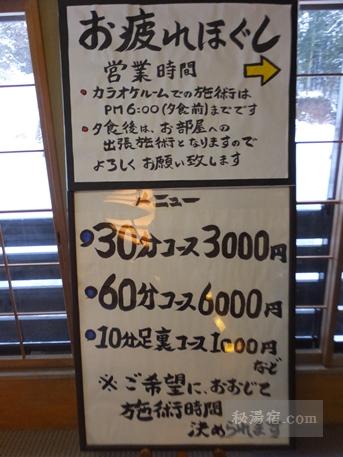 お疲れほぐし
営業時間
・カラオケルームでの施術は
PM6:00(夕食前)までです
・夕食後は、お部屋への
出張施術となりますので
よろしくお願い致します
メニュー
・30分コース3000円
・60分コース6000円
・10分足裏コース1000円
など
※ご希望に、おおじて
施術時間
決められます
秘湯宿.com